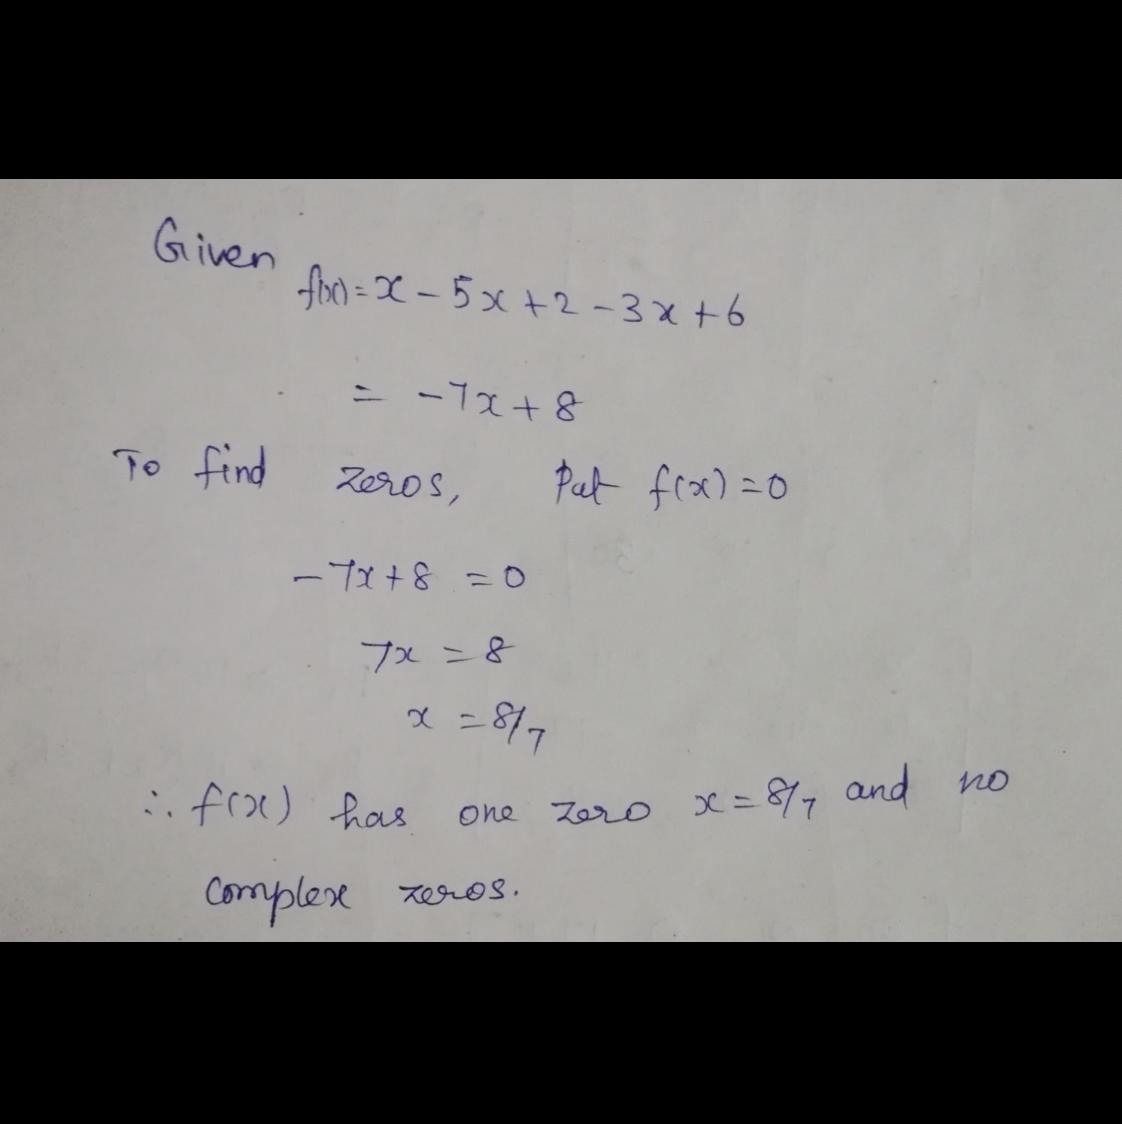 Given
f(x) = x - 5x + 2 - 3x + 6
= -7x + 8
To find zeros, Put f(x) = 0
-7x + 8 = 0
7x = 8
x = 8/7
∴ f(x) has one zero x = 8/7 and no
complex zeros.